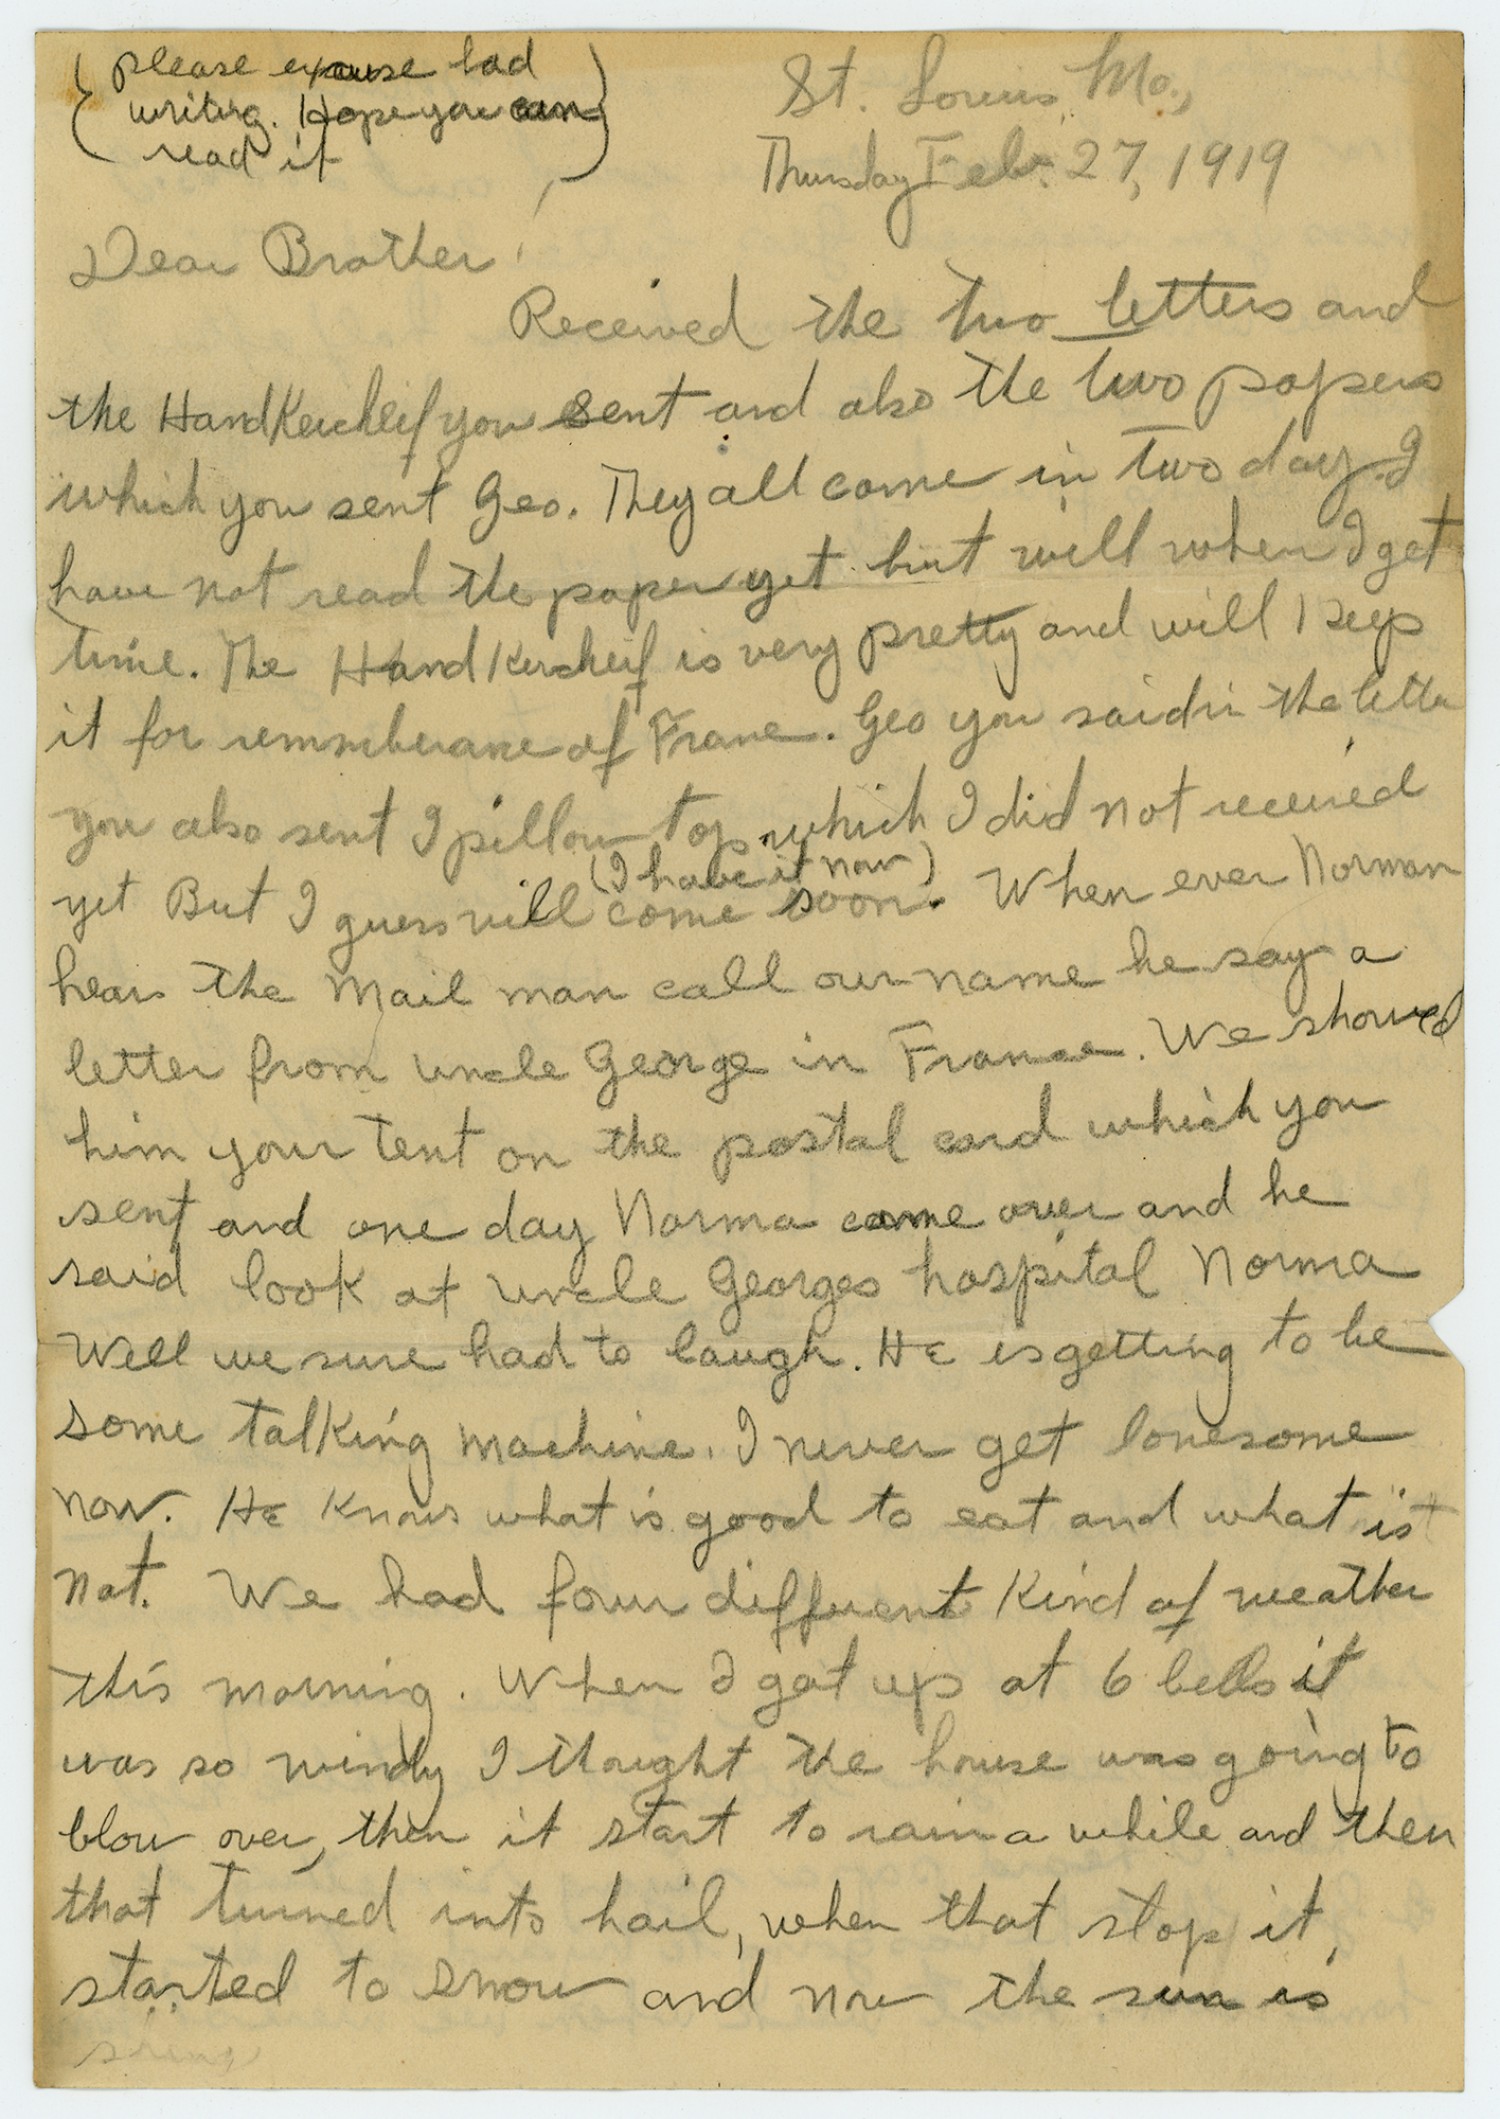 {please excuse bad
writing. Hope you can
read it}
St. Louis, Mo.,
Thursday Feb. 27, 1919
Dear Brother,
Received the two letters and
the Handkercheif you sent and also the two papers
which you sent Geo. They all came in two day. I
have not read the paper yet but will when I get
time. The Handkercheif is very pretty and will I keep
it for rememberane of Frane. Geo you said in the letter
you also sent I pillow top which I did not received
yet But I guess will come soon. (I have it now) When ever Norman
hears the Mail man call our name he say a
letter from uncle George in France. We showed
him your tent on the postal card which you
sent and one day Norma came over and he
said look at Uncle Georges hospital Norma
Well we sure had to laugh. He is getting to be
some talking machine. I never get lonesome
now. He knows what is good to eat and what is
not. We had four diffuent kind of weather
this morning. When I got up at 6 bells it
was so windy I thought the house was going to
blow over, then it start to rain a while and then
that turned into hail, when that stop it,
started to snow and now the sun is